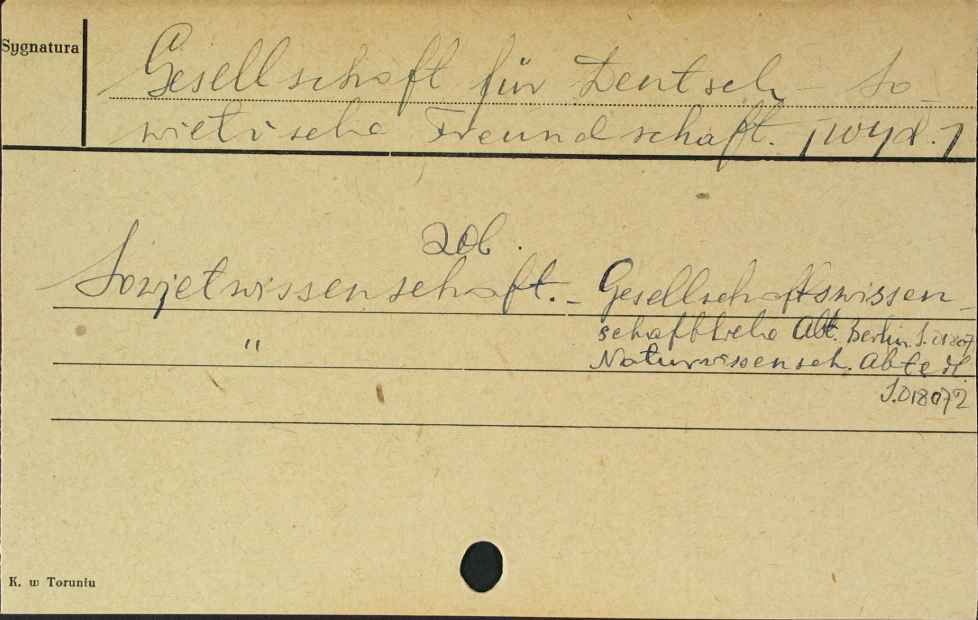 Sygnatura
Gesellschaft für Deutsch- So-
wietische Freundschaft. [wyd.]
zob.
Sowjetwissenschaft. - Gesellschaftswissen-
schaftliche Abt. Berlin S.01807
" Naturwissensch. Abteil.
S.018072
K. w Toruniu